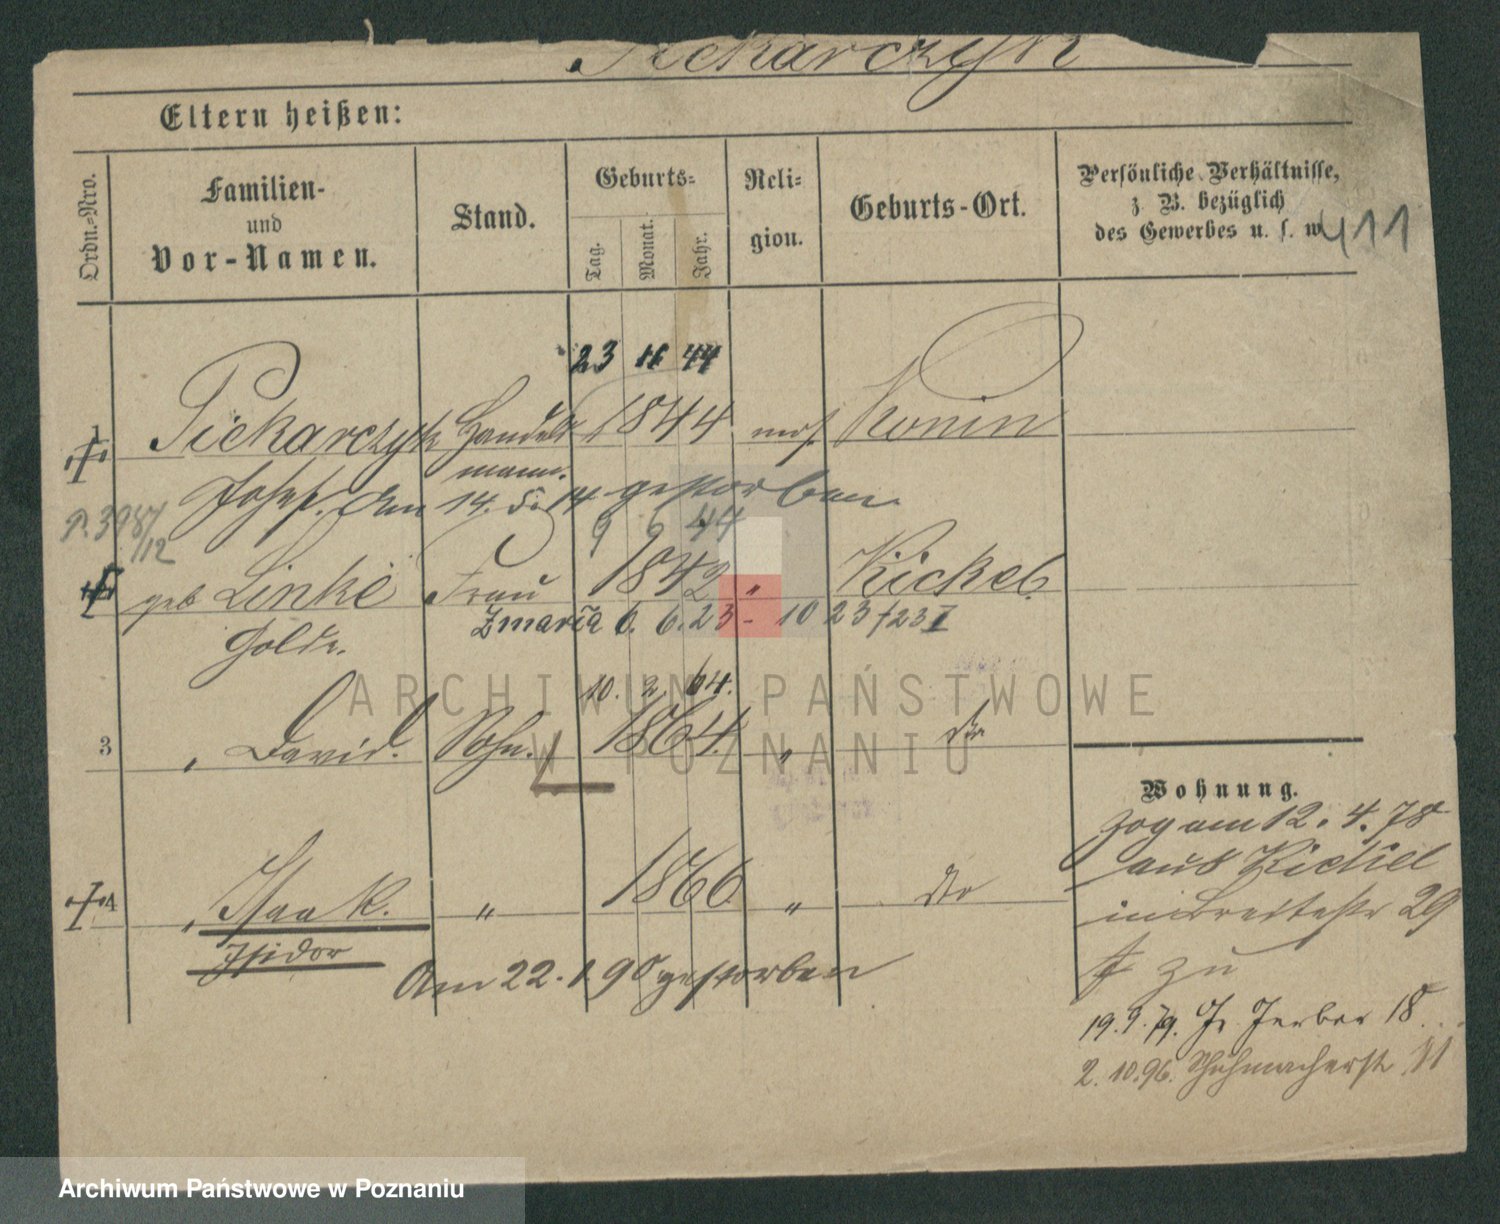 Piekarczyk
Eltern heißen:
Ordn.-Nro.
Familien-
und
Vor-Namen.
Stand.
Geburts-
Tag.
Monat.
Jahr.
Reli-
gion.
Geburts-Ort.
Persönliche Verhältnisse,
z B. bezüglich
des Gewerbes u. s. w.
411
23 11 44
1 Piekarczyk Handels 1844 mos. Konin
mann.
Josef. Am 14. 5. 14 gestorben.
P. 3987/12
9 6 44
geb Linke Frau 1842 " Kickel
Zmarła 6. 6. 23 - 10 23 / 23 I
Golde.
10. 2. 64.
3 " David. Sohn. 1864. " dto
4 " Isaak. " 1866 " dto
Isidor
Am 22. 1. 90 gestorben
Wohnung.
Zog am 12. 4. 78
aus Kickel
in Breitestr 29
zu
19. 9. 79. Gr. Gerber 18
2. 10. 96. Schuhmacherstr 11
ARCHIWUM PAŃSTWOWE
W POZNANIU
Archiwum Państwowe w Poznaniu